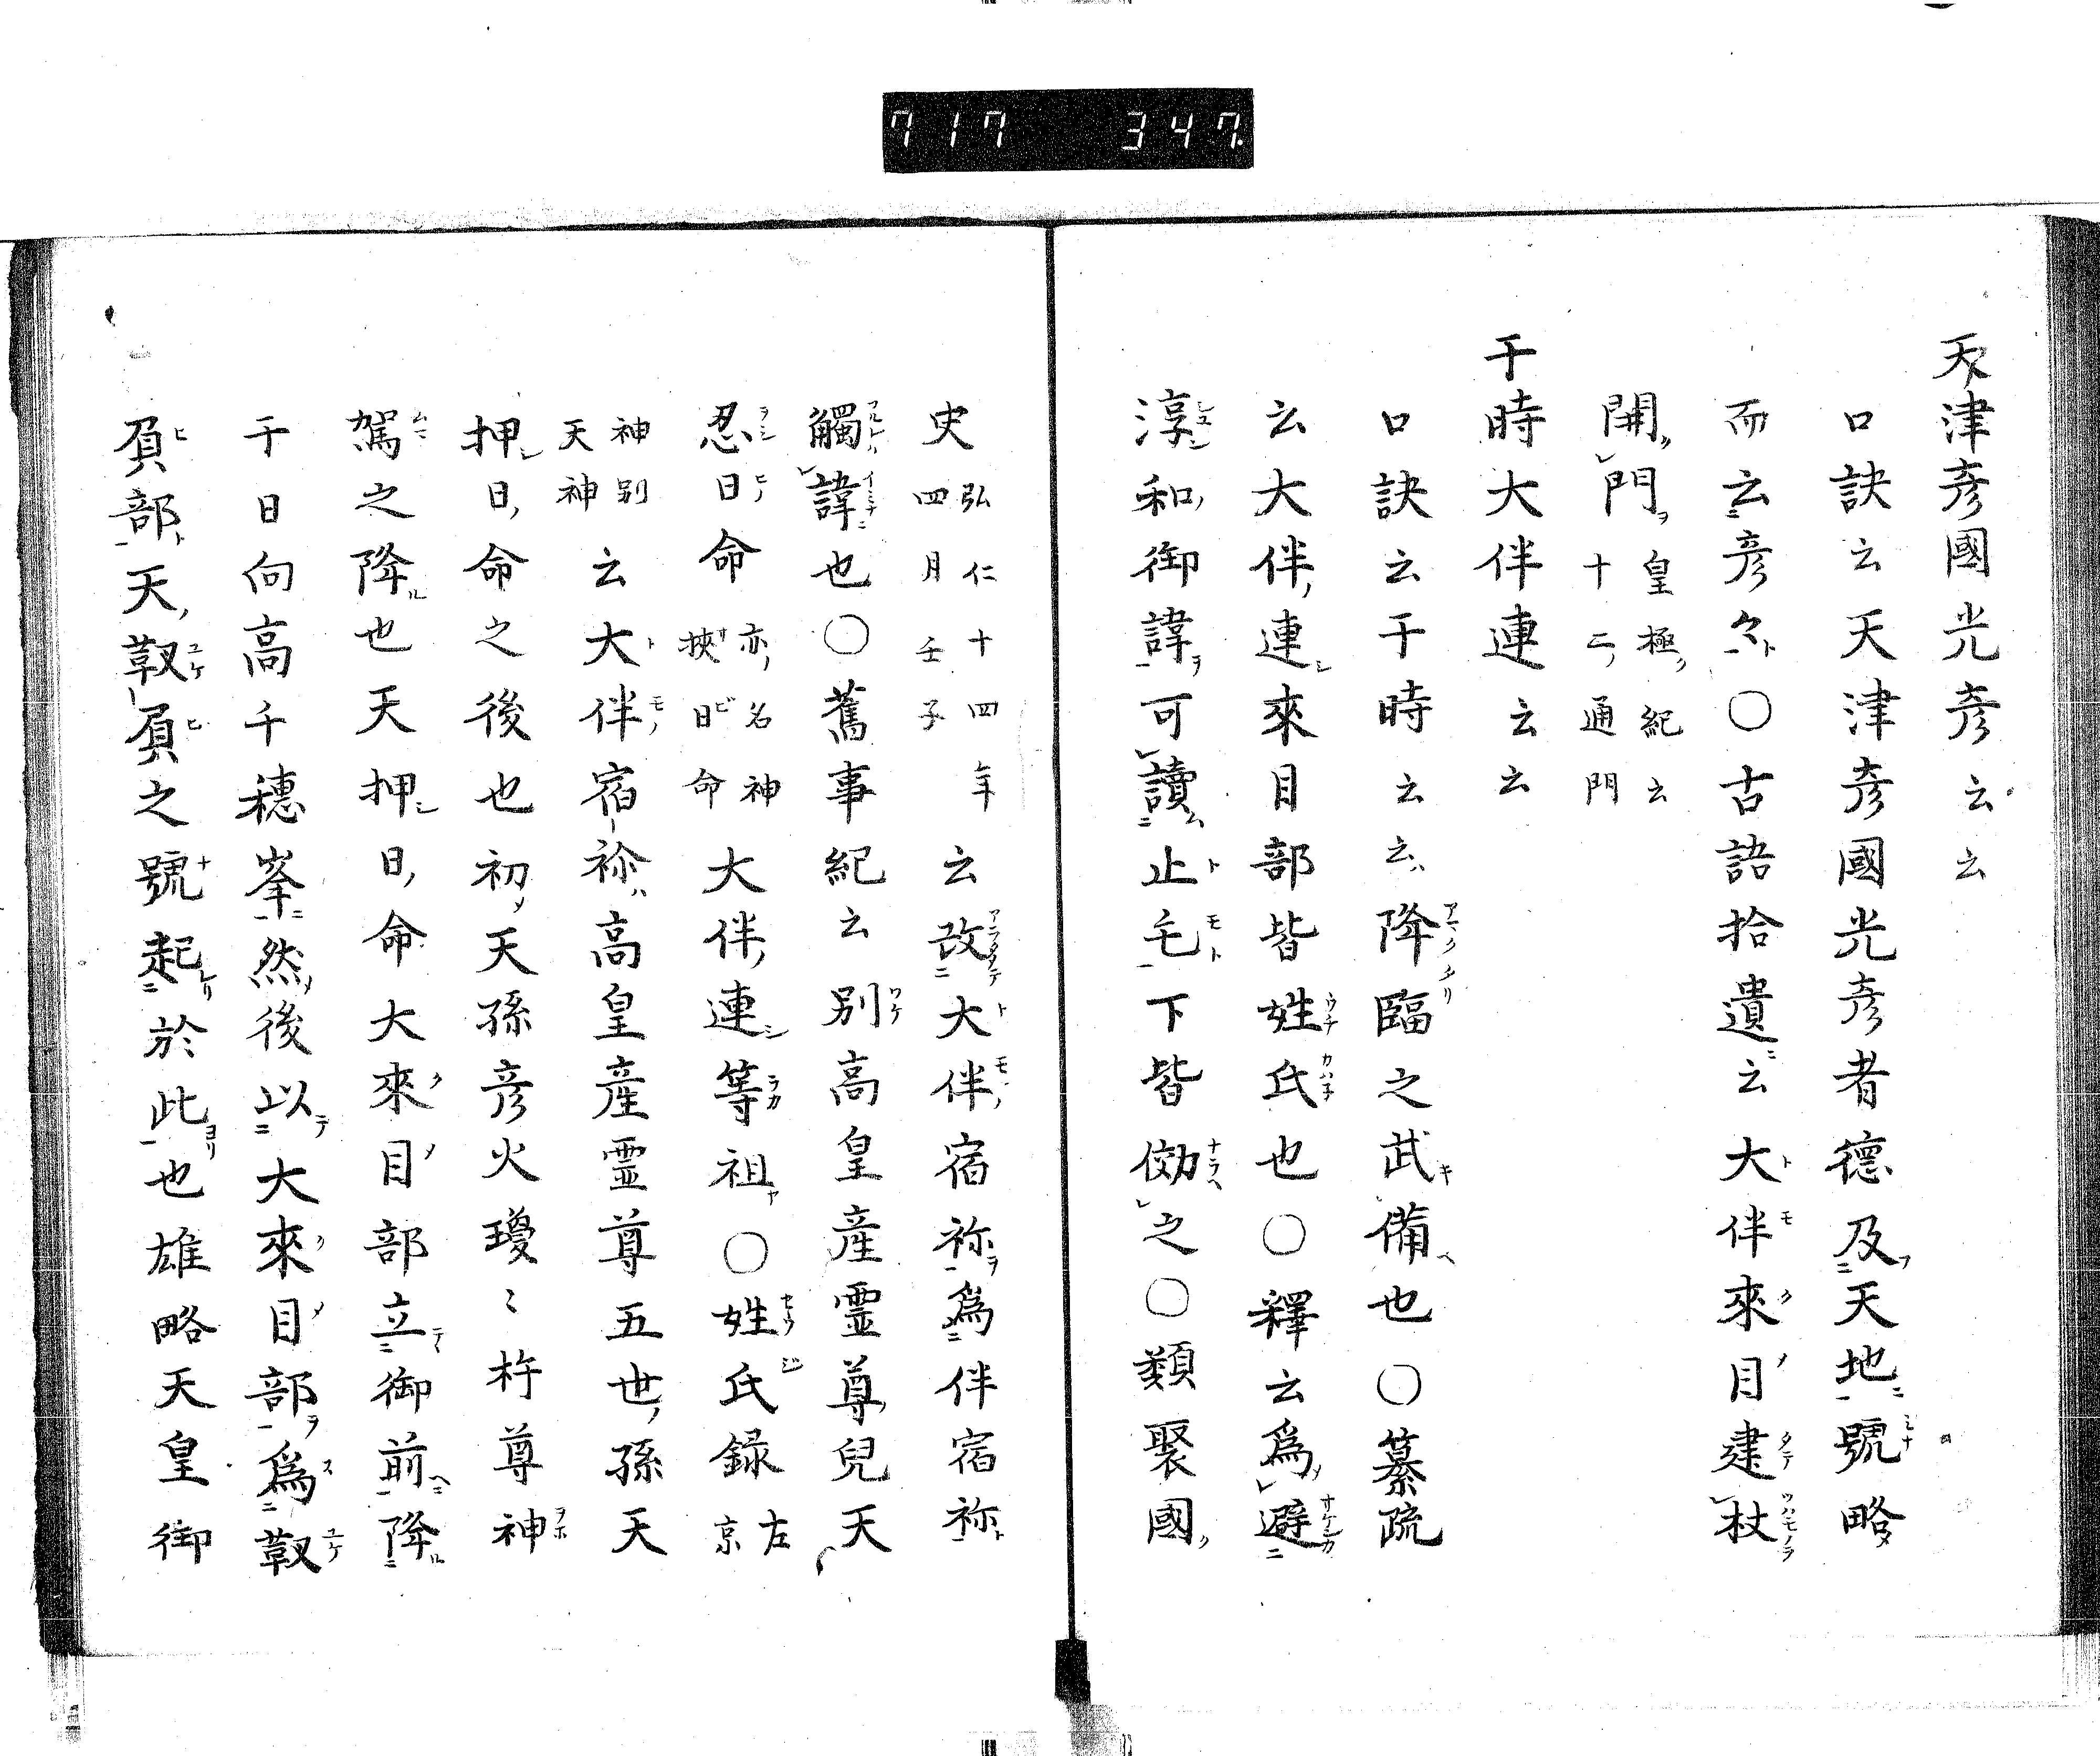 717 347
天津彦國光彦云云
口訣云天津彦國光彦者德及天地號略
而云彦尓○古語拾遺云大伴來目建杖
開門皇極紀云
十二通門
于時大伴連云云
口訣云于時云云降臨之武備也○纂疏
云大伴連來目部皆姓氏也○釋云爲避
淳和御諱可讀止毛下皆傚之○類聚國
史弘仁十四年
四月壬子云改大伴宿祢爲伴宿祢
觸諱也○舊事紀云別高皇産霊尊兒天
忍日命亦名神
挾日命大伴連等祖○姓氏録左
京
神別
天神云大伴宿祢高皇産霊尊五世孫天
押日命之後也初天孫彦火瓊〻杵尊神
駕之降也天押日命大來目部立御前降
于日向高千穗峯然後以大來目部爲靫
負部天靫負之號起於此也雄略天皇御